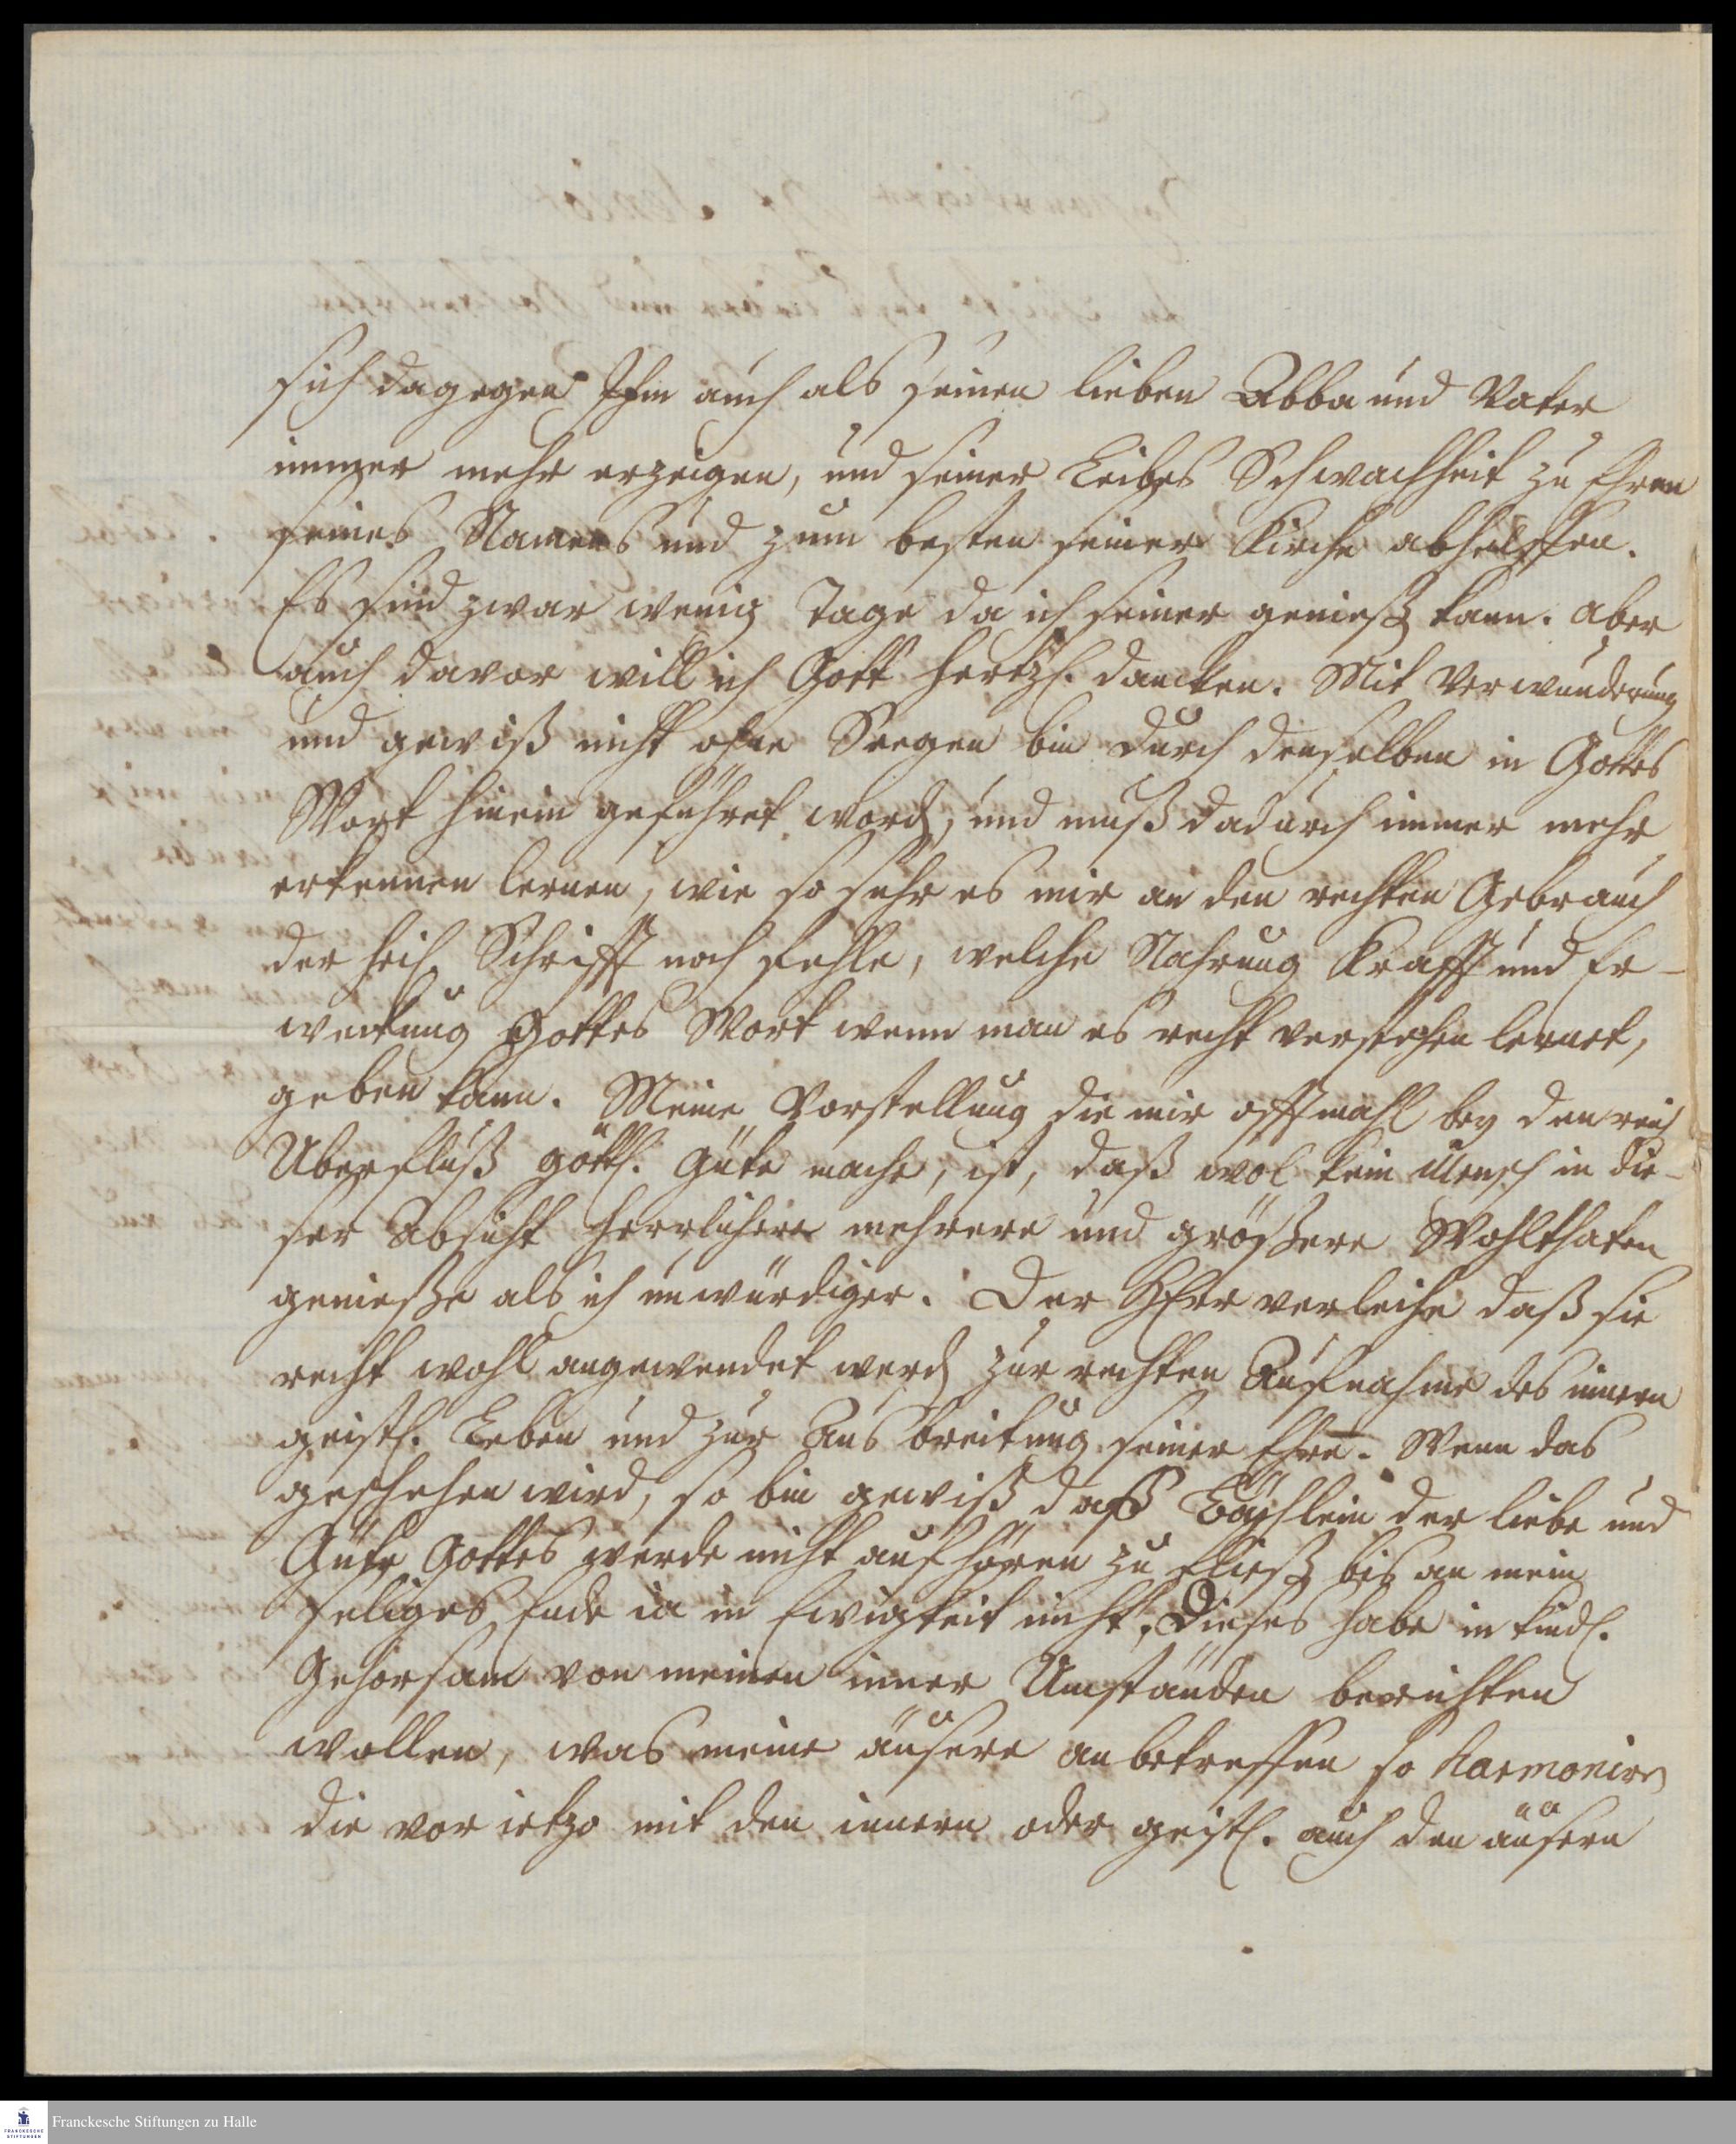 sich dagegen Ihm auch als seinen lieben Abba und Vater
immer mehr erzeigen, und seiner Leibes Schwachheit zu Ehren
seines Namens und zum besten seiner Kirche abhelffen.
Es sind zwar wenig Tage da ich seiner genieß kann. aber
auch davor will ich Gott hertzl. dancken. Mit Verwunderung
und gewiß nicht ohne Seegen bin durch denselben in Gottes
Wort hinein geführet word, und muß dadurch immer mehr
erkennen lernen, wie so sehr es mir an den rechten Gebrauch
der heil Schrifft noch fehle, welche Nahrung Krafft und Er-
weckung Gottes Wort wenn man es recht verstehen lernet,
geben kann. Meine Vorstellung die mir offtmahl bey den reich
Uberfluß göttl. Güte mache, ist, daß wol kein Mensch in die-
ser Absicht herrlichere mehrere und größere Wohlthaten
genieße als ich unwürdiger. Der HErr verleihe daß sie
recht wohl angewendet werd zur rechten Aufnahme des innern
geistl. Leben und zur Ausbreitung seiner Ehre. Wenn das
geschehen wird, so bin gewiß daß Bächlein der liebe und
Güte Gottes werde nicht aufhören zu fließ bis an mein
seliges Ende ia in Ewigkeit nicht. Dieses habe in kindl.
Gehorsam von meinen inner Umständen berichten
wollen, was meine äusere anbetreffen so harmoniren
die vor ietzo mit den innern oder geistl. auch den äusern
Franckesche Stiftungen zu Halle
FRANCKESCHE
STIFTUNGEN